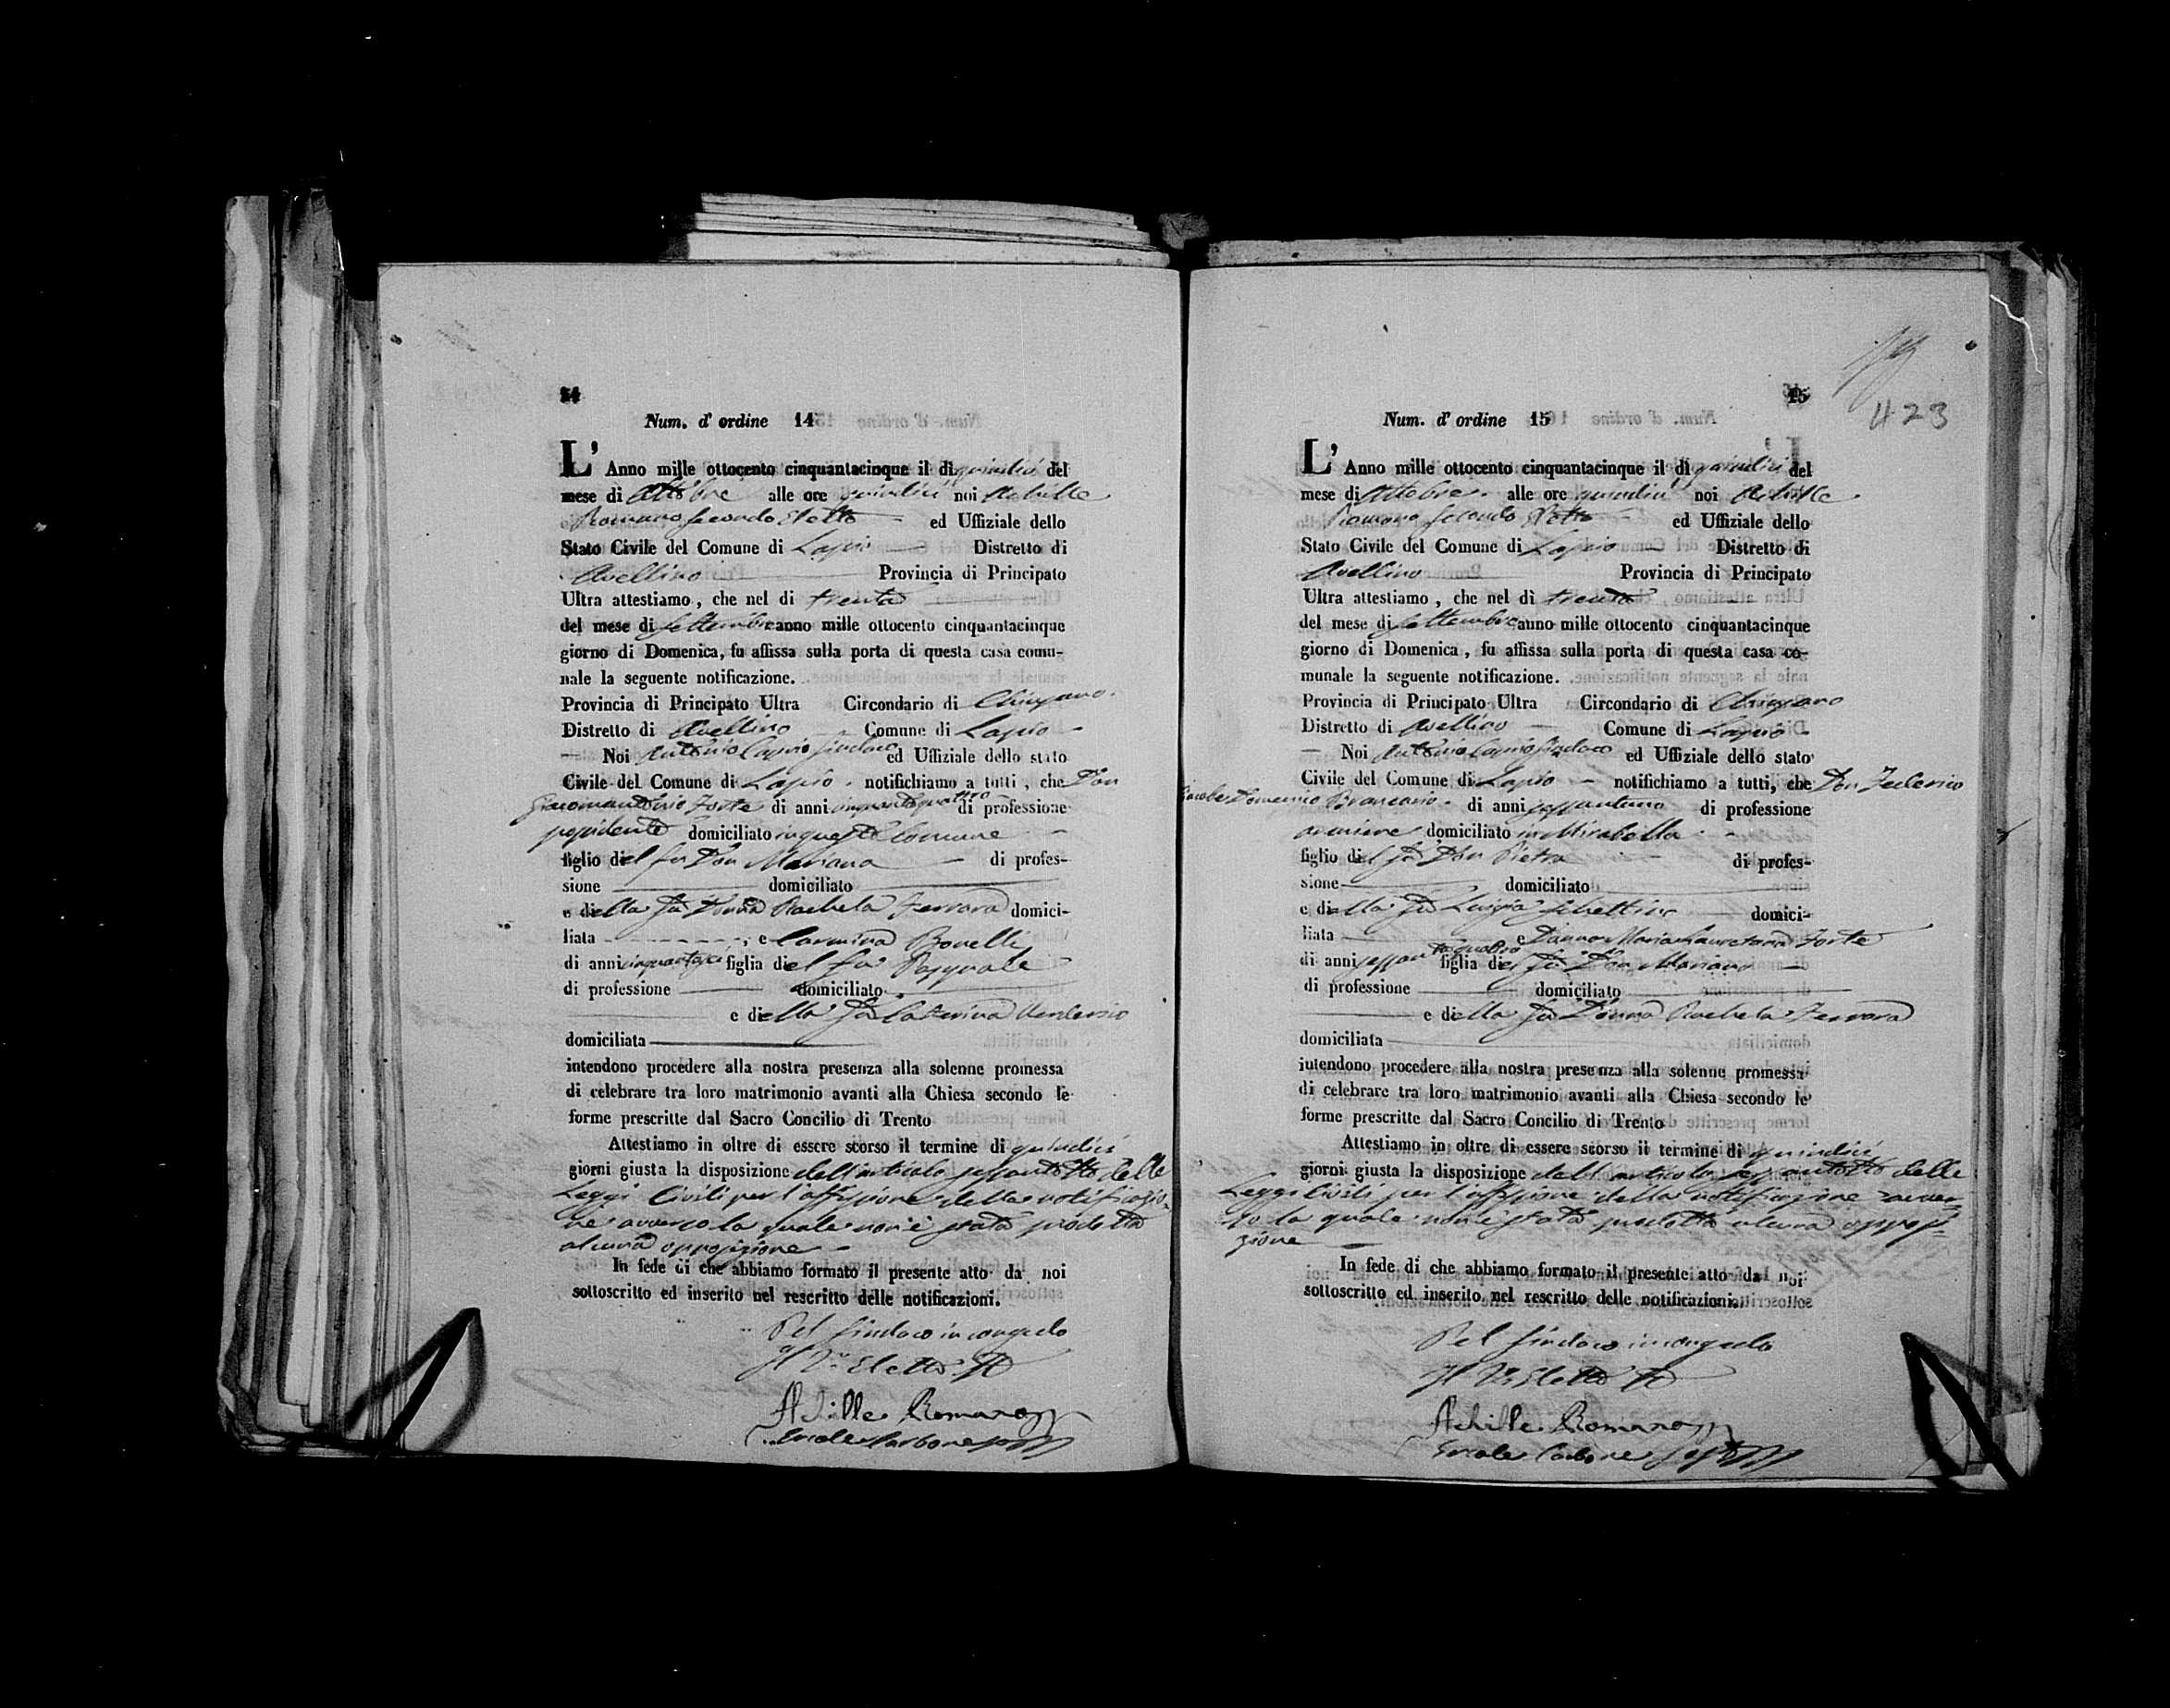 14
Num. d' ordine 14
L' Anno mille ottocento cinquantacinque il dì quindici del
mese di Ottobre alle ore quindici noi Achille
Romano Secondo Eletto ed Uffiziale dello
Stato Civile del Comune di Lapio Distretto di
Avellino Provincia di Principato
Ultra attestiamo, che nel di trenta
del mese di Settembre anno mille ottocento cinquantacinque
giorno di Domenica, fu affissa sulla porta di questa casa comu-
nale la seguente notificazione.
Provincia di Principato Ultra Circondario di Chiusano
Distretto di Avellino Comune di Lapio
Noi Antonio Capio Sindaco ed Uffiziale dello stato
Civile del Comune di Lapio notifichiamo a tutti, che Don
Giacomantonio Forte di anni cinquantaquattro di professione
possidente domiciliato in questo Comune
figlio del fu Don Mariano di profes-
sione domiciliato
e della fu Donna Rachela Ferrara domici-
liata , e Carmina Bonelli
di anni figlia del fu Pasquale
di professione domiciliato
e della fu Caterina
domiciliata
intendono procedere alla nostra presenza alla solenne promessa
di celebrare tra loro matrimonio avanti alla Chiesa secondo le
forme prescritte dal Sacro Concilio di Trento
Attestiamo in oltre di essere scorso il termine di quindici
giorni giusta la disposizione dell'articolo sessantotto delle
Leggi Civili per l'affissione della notificazio-
ne avverso la quale non è stata prodotta
alcuna opposizione
In fede di che abbiamo formato il presente atto da noi
sottoscritto ed inserito nel rescritto delle notificazioni.
Pel Sindaco in congedo
Il 2° Eletto
Achille Romano
Carbone
15
423
Num. d' ordine 15
L' Anno mille ottocento cinquantacinque il dì quindici del
mese di Ottobre alle ore quindici noi Achille
Romano Secondo Eletto ed Uffiziale dello
Stato Civile del Comune di Lapio Distretto di
Avellino Provincia di Principato
Ultra attestiamo, che nel dì trenta
del mese di Settembre anno mille ottocento cinquantacinque
giorno di Domenica, fu affissa sulla porta di questa casa co-
munale la seguente notificazione.
Provincia di Principato Ultra Circondario di Chiusano
Distretto di Avellino Comune di Lapio
Noi Antonio Capio Sindaco ed Uffiziale dello stato
Civile del Comune di Lapio notifichiamo a tutti, che Don Federico
Domenico di anni sessantuno di professione
domiciliato in Mirabella
figlio del fu Don Pietro di profes-
sione domiciliato
e della fu Luigia Schettino domici-
liata e Donna Maria Lauretana Forte
di anni sessantaquattro figlia del fu Don Mariano
di professione domiciliato
e della fu Donna Rachela Ferrara
domiciliata
intendono procedere alla nostra presenza alla solenne promessa
di celebrare tra loro matrimonio avanti alla Chiesa secondo le
forme prescritte dal Sacro Concilio di Trento
Attestiamo in oltre di essere scorso il termine di quindici
giorni giusta la disposizione dell'articolo sessantotto delle
Leggi Civili per l'affissione della notificazione avver-
so la quale non è stata prodotta alcuna opposi-
zione
In fede di che abbiamo formato il presente atto da noi
sottoscritto ed inserito nel rescritto delle notificazioni.
Pel Sindaco in congedo
Il 2° Eletto
Achille Romano
Carbone